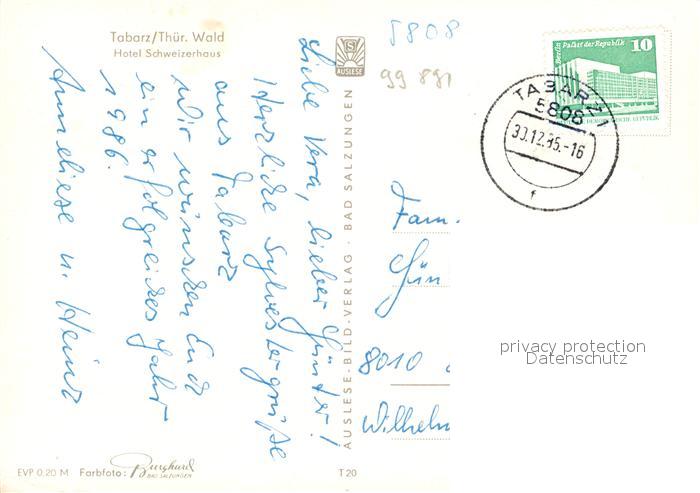 Tabarz/Thür. Wald
Hotel Schweizerhaus
Liebe Vera, lieber Günter!
Herzliche Sylvestergrüße
aus Tabarz
Wir wünschen Euch
ein erfolgreiches Jahr
1986.
Anneliese u. Heinz
S
AUSLESE
AUSLESE-BILD-VERLAG · BAD SALZUNGEN
5808
99 891
Berlin Palast der Republik 10
DEUTSCHE DEMOKRATISCHE REPUBLIK
TABARZ 1
5808
30.12.85.-16
f
Fam.
Gün
8010
Wilhelm
privacy protection
Datenschutz
EVP 0,20 M Farbfoto: Burghard
BAD SALZUNGEN
T 20